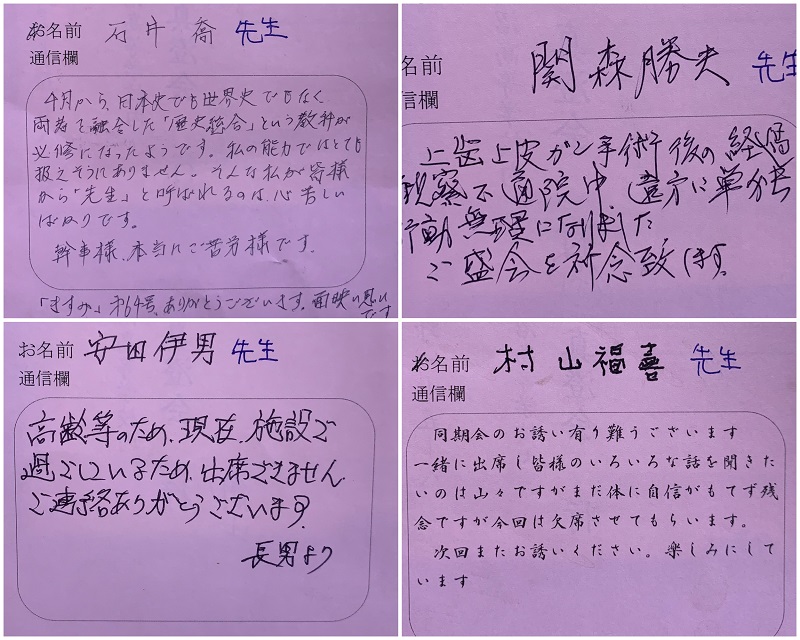 お名前 石井 喬 先生
通信欄
4月から、日本史でも世界史でもなく
両者を融合した「歴史総合」という教科が
必修になったようです。私の能力ではとても
扱えそうにありません。そんな私が皆様
から"先生"と呼ばれるのは、心苦しい
ばかりです。
幹事様、本当にご苦労様です。
「ますみ」才64号、ありがとうございます。面映い思い
です
名前 関森勝夫 先生
信欄
上歯上皮ガン手術后の経過
観察で通院中、遠方に単独
行動無理になりました
ご盛会を祈念致します。
お名前 安田伊男 先生
通信欄
高齢等のため、現在、施設で
過ごしているため、出席できません
ご連絡ありがとうございます。
長男より
お名前 村山福喜 先生
通信欄
同期会のお誘い有り難うございます
一緒に出席し皆様のいろいろな話を聞きた
いのは山々ですがまだ体に自信がもてず残
念ですが今回は欠席させてもらいます。
次回またお誘いください。楽しみにして
います